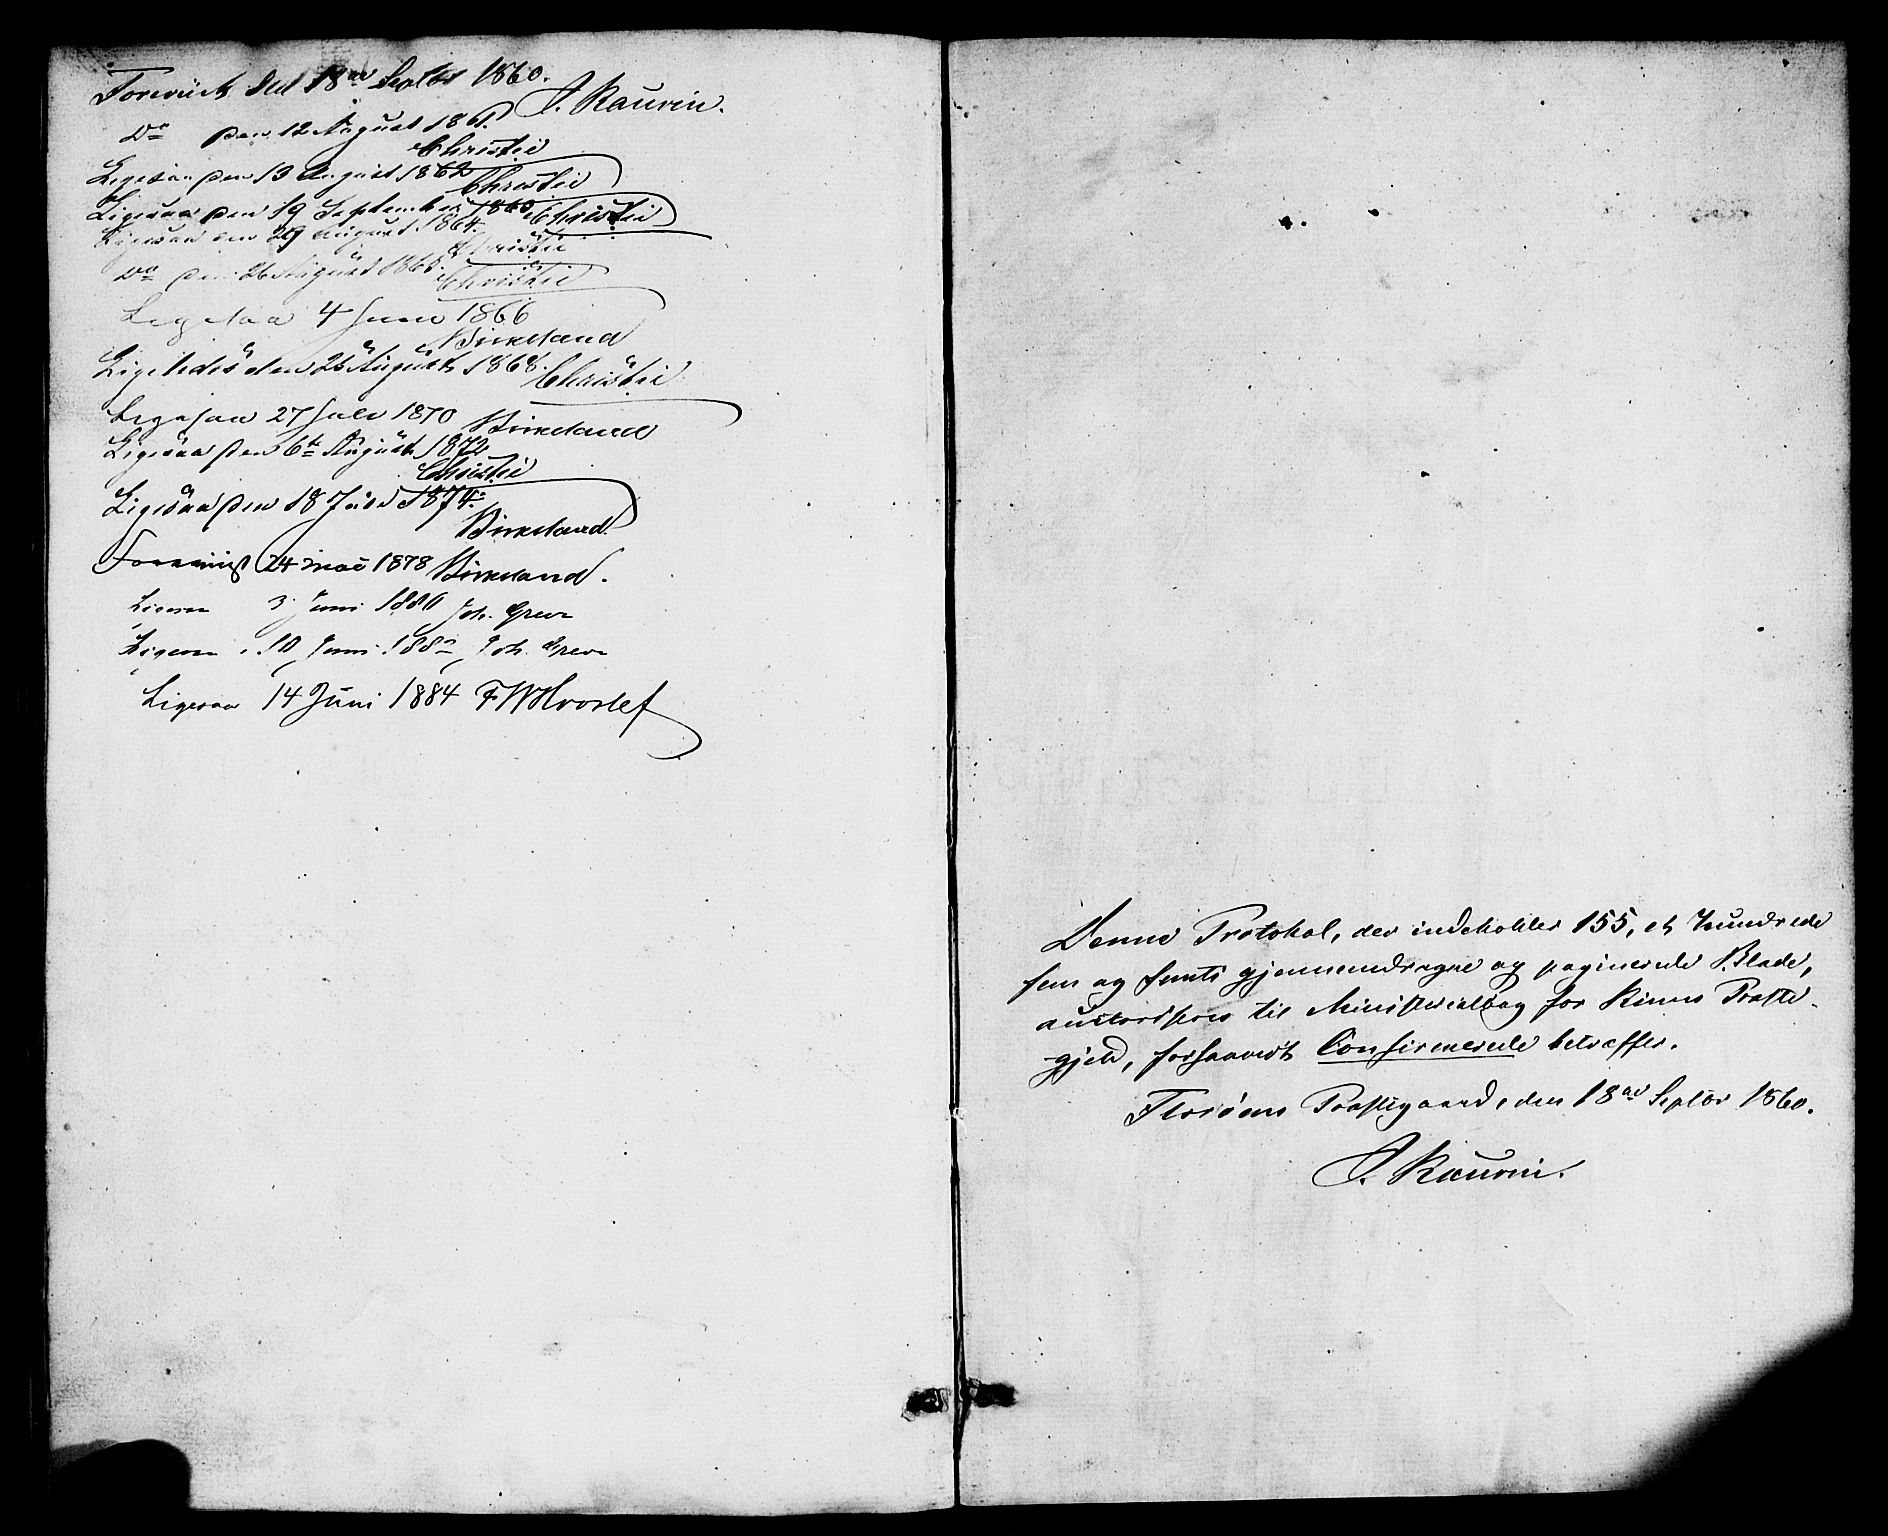 Foreviist den 18de Septbr 1860.
J. Kaurin.
Do den 12 August 1861.
Christie
Ligesaa den 13 August 1862
Christie
Ligesaa den 19 September 1863 Christie
Ligesaa den 29 August 1864.
Christie
Do den 26 August 1865.
Christie
Ligesaa 4 Juni 1866
Birkeland
Ligeledes den 26 August 1868. Christie
Ligesaa 27 Juli 1870 Birkeland
Ligesaa den 6te August 1872
Christie
Ligesaa den 18 Juli 1874.
Birkeland
Foreviist 24 mai 1878 Birkeland.
Ligesaa 3. Juni 1880 Joh. Greve
Ligesaa 10 Juni 1882 Joh. Greve
Ligesaa 14 Juni 1884 F W Hvoslef
Denne Protokol, der indeholder 155, et Hundrede
fem og femti gjennemdragne og paginerede Blade,
autoriseres til Ministerialbog for Kinns Præste-
gjeld, forsaavidt Confirmerede betræffer.
Florøens Præstegaard, den 18de Septbr 1860.
J. Kaurin.